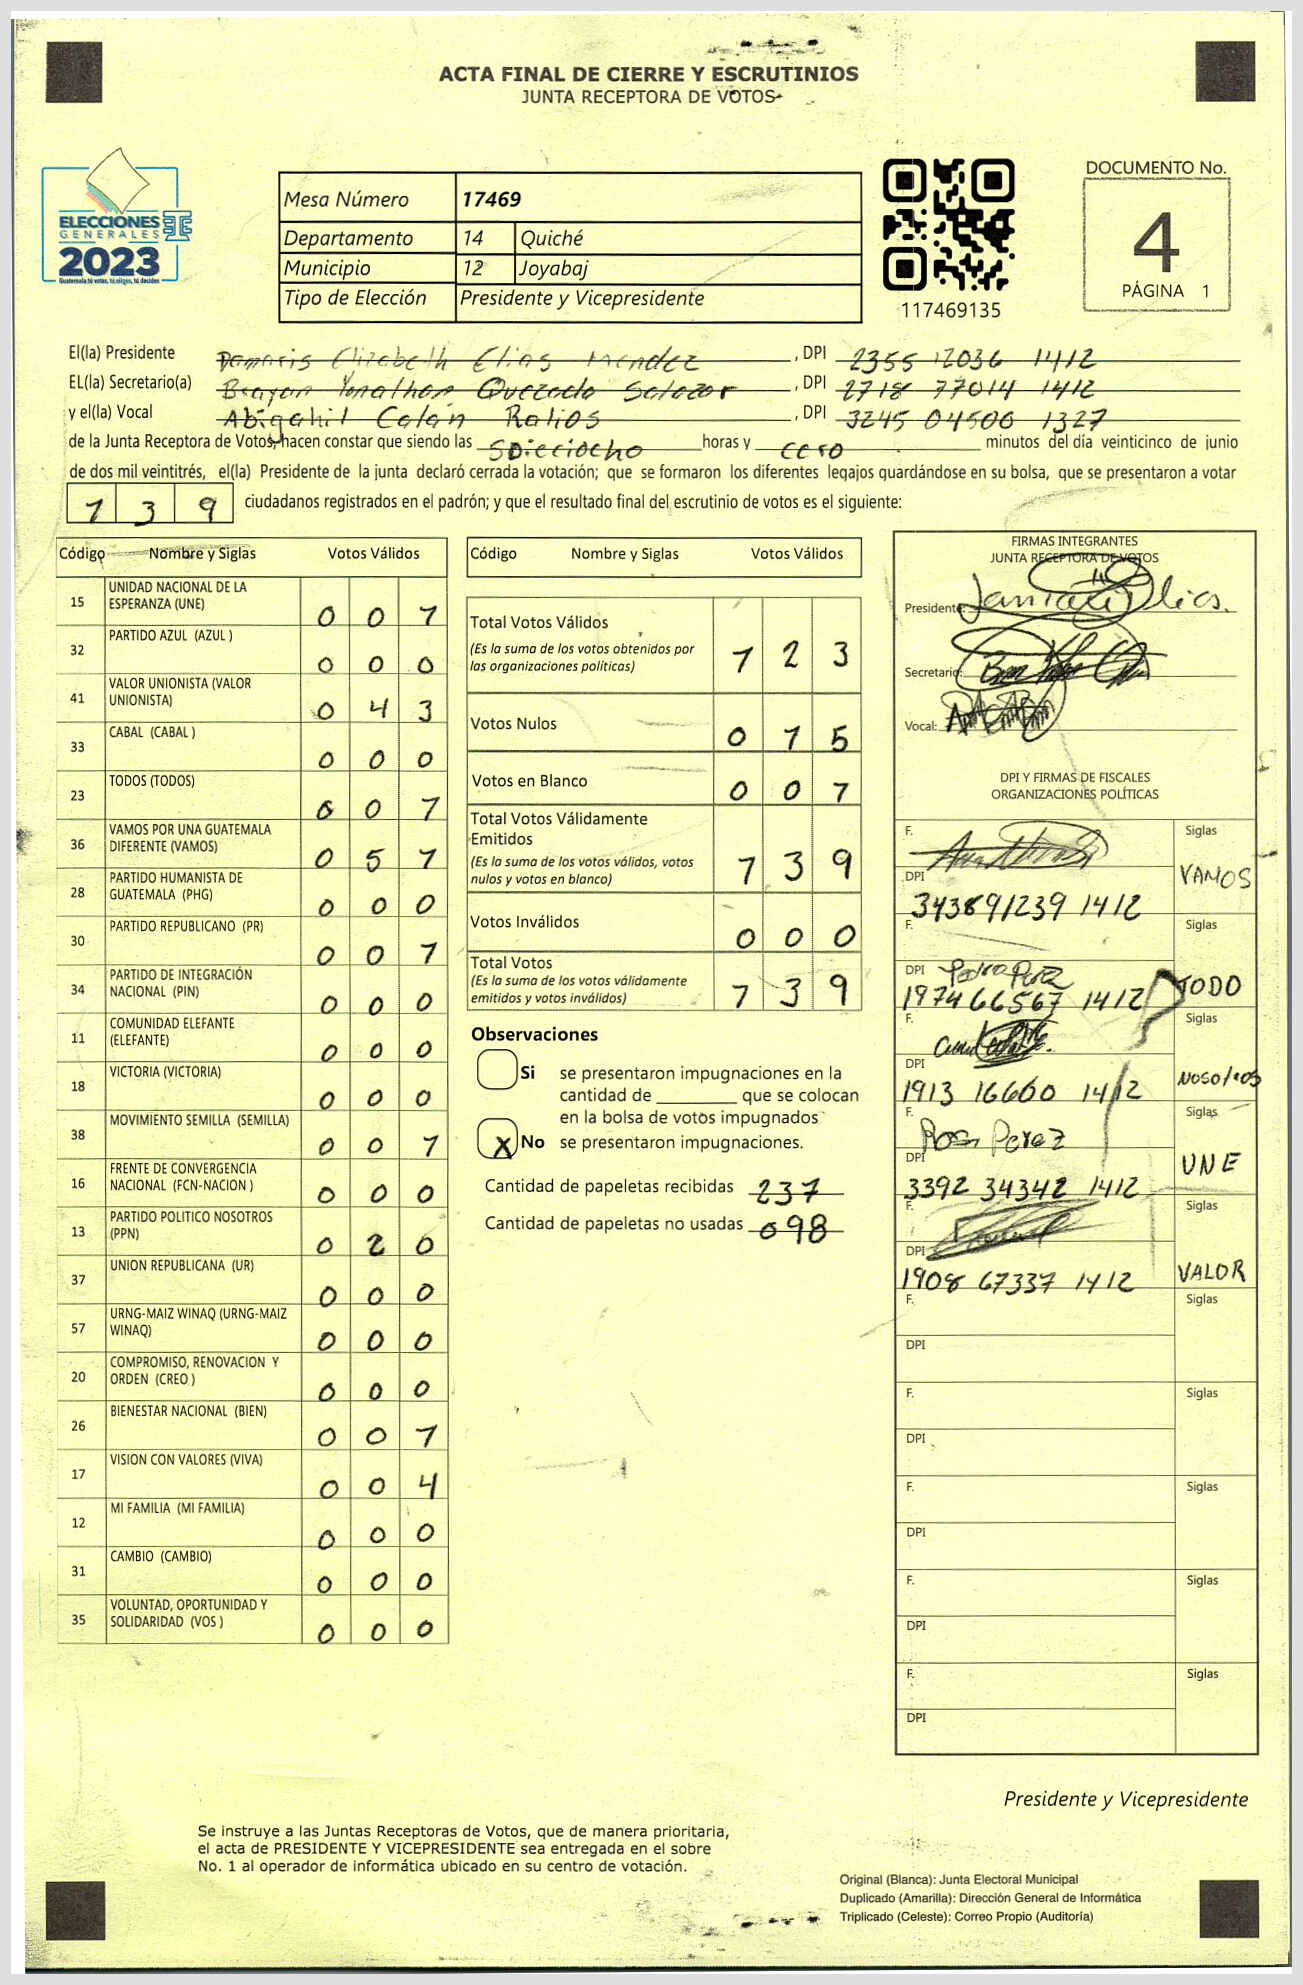 ACTA FINAL DE CIERRE Y ESCRUTINIOS
JUNTA RECEPTORA DE VOTOS
ELECCIONES
GENERALES
2023
Guatemala tú votas, tú eliges, tú decides
TSE
Mesa Número 17469
Departamento 14 Quiché
Municipio 12 Joyabaj
Tipo de Elección Presidente y Vicepresidente
117469135
DOCUMENTO No.
4
PÁGINA 1
El(la) Presidente Damaris Elizabeth Elias Mendez, DPI 2355 12036 1412
EL(la) Secretario(a) Brayan Yonathan Quezada Salazar, DPI 2718 77014 1412
y el(la) Vocal Abigahil Calán Ralios, DPI 3245 04506 1327
de la Junta Receptora de Votos, hacen constar que siendo las Dieciocho horas y cero minutos del día veinticinco de junio
de dos mil veintitrés, el(la) Presidente de la junta declaró cerrada la votación; que se formaron los diferentes legajos quardándose en su bolsa, que se presentaron a votar
1 3 9 ciudadanos registrados en el padrón; y que el resultado final del escrutinio de votos es el siguiente:
Código Nombre y Siglas Votos Válidos
15 UNIDAD NACIONAL DE LA ESPERANZA (UNE) 0 0 1
32 PARTIDO AZUL (AZUL ) 0 0 0
41 VALOR UNIONISTA (VALOR UNIONISTA) 0 4 3
33 CABAL (CABAL ) 0 0 0
23 TODOS (TODOS) 0 0 1
36 VAMOS POR UNA GUATEMALA DIFERENTE (VAMOS) 0 5 1
28 PARTIDO HUMANISTA DE GUATEMALA (PHG) 0 0 0
30 PARTIDO REPUBLICANO (PR) 0 0 1
34 PARTIDO DE INTEGRACIÓN NACIONAL (PIN) 0 0 0
11 COMUNIDAD ELEFANTE (ELEFANTE) 0 0 0
18 VICTORIA (VICTORIA) 0 0 0
38 MOVIMIENTO SEMILLA (SEMILLA) 0 0 1
16 FRENTE DE CONVERGENCIA NACIONAL (FCN-NACION ) 0 0 0
13 PARTIDO POLITICO NOSOTROS (PPN) 0 2 0
37 UNION REPUBLICANA (UR) 0 0 0
57 URNG-MAIZ WINAQ (URNG-MAIZ WINAQ) 0 0 0
20 COMPROMISO, RENOVACION Y ORDEN (CREO ) 0 0 0
26 BIENESTAR NACIONAL (BIEN) 0 0 1
17 VISION CON VALORES (VIVA) 0 0 4
12 MI FAMILIA (MI FAMILIA) 0 0 0
31 CAMBIO (CAMBIO) 0 0 0
35 VOLUNTAD, OPORTUNIDAD Y SOLIDARIDAD (VOS ) 0 0 0
Código Nombre y Siglas Votos Válidos
Total Votos Válidos 1 2 3
(Es la suma de los votos obtenidos por
las organizaciones políticas)
Votos Nulos 0 1 5
Votos en Blanco 0 0 1
Total Votos Válidamente
Emitidos 1 3 9
(Es la suma de los votos válidos, votos
nulos y votos en blanco)
Votos Inválidos 0 0 0
Total Votos 1 3 9
(Es la suma de los votos válidamente
emitidos y votos inválidos)
Observaciones
Si se presentaron impugnaciones en la
cantidad de ________ que se colocan
en la bolsa de votos impugnados
X No se presentaron impugnaciones.
Cantidad de papeletas recibidas 237
Cantidad de papeletas no usadas 098
FIRMAS INTEGRANTES
JUNTA RECEPTORA DE VOTOS
Presidente:
Secretario:
Vocal:
DPI Y FIRMAS DE FISCALES
ORGANIZACIONES POLÍTICAS
F. Siglas
DPI 343891239 1412 VAMOS
F. Siglas
DPI Pedro Perez
197466567 1412 TODO
F. Siglas
DPI 1913 16660 1412 NOSOTROS
F. Rosa Perez Siglas
DPI 3392 34342 1412 UNE
F. Siglas
DPI 1908 67337 1412 VALOR
F. Siglas
DPI
F. Siglas
DPI
F. Siglas
DPI
F. Siglas
DPI
F. Siglas
DPI
Presidente y Vicepresidente
Se instruye a las Juntas Receptoras de Votos, que de manera prioritaria,
el acta de PRESIDENTE Y VICEPRESIDENTE sea entregada en el sobre
No. 1 al operador de informática ubicado en su centro de votación.
Original (Blanca): Junta Electoral Municipal
Duplicado (Amarilla): Dirección General de Informática
Triplicado (Celeste): Correo Propio (Auditoría)